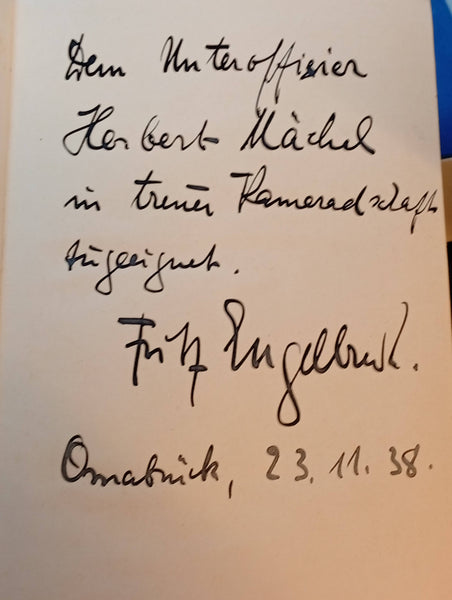 Dem Unteroffizier
Herbert Mächel
in treuer Kameradschaft
zugeeignet.
Fritz
Osnabrück, 23.11.38.